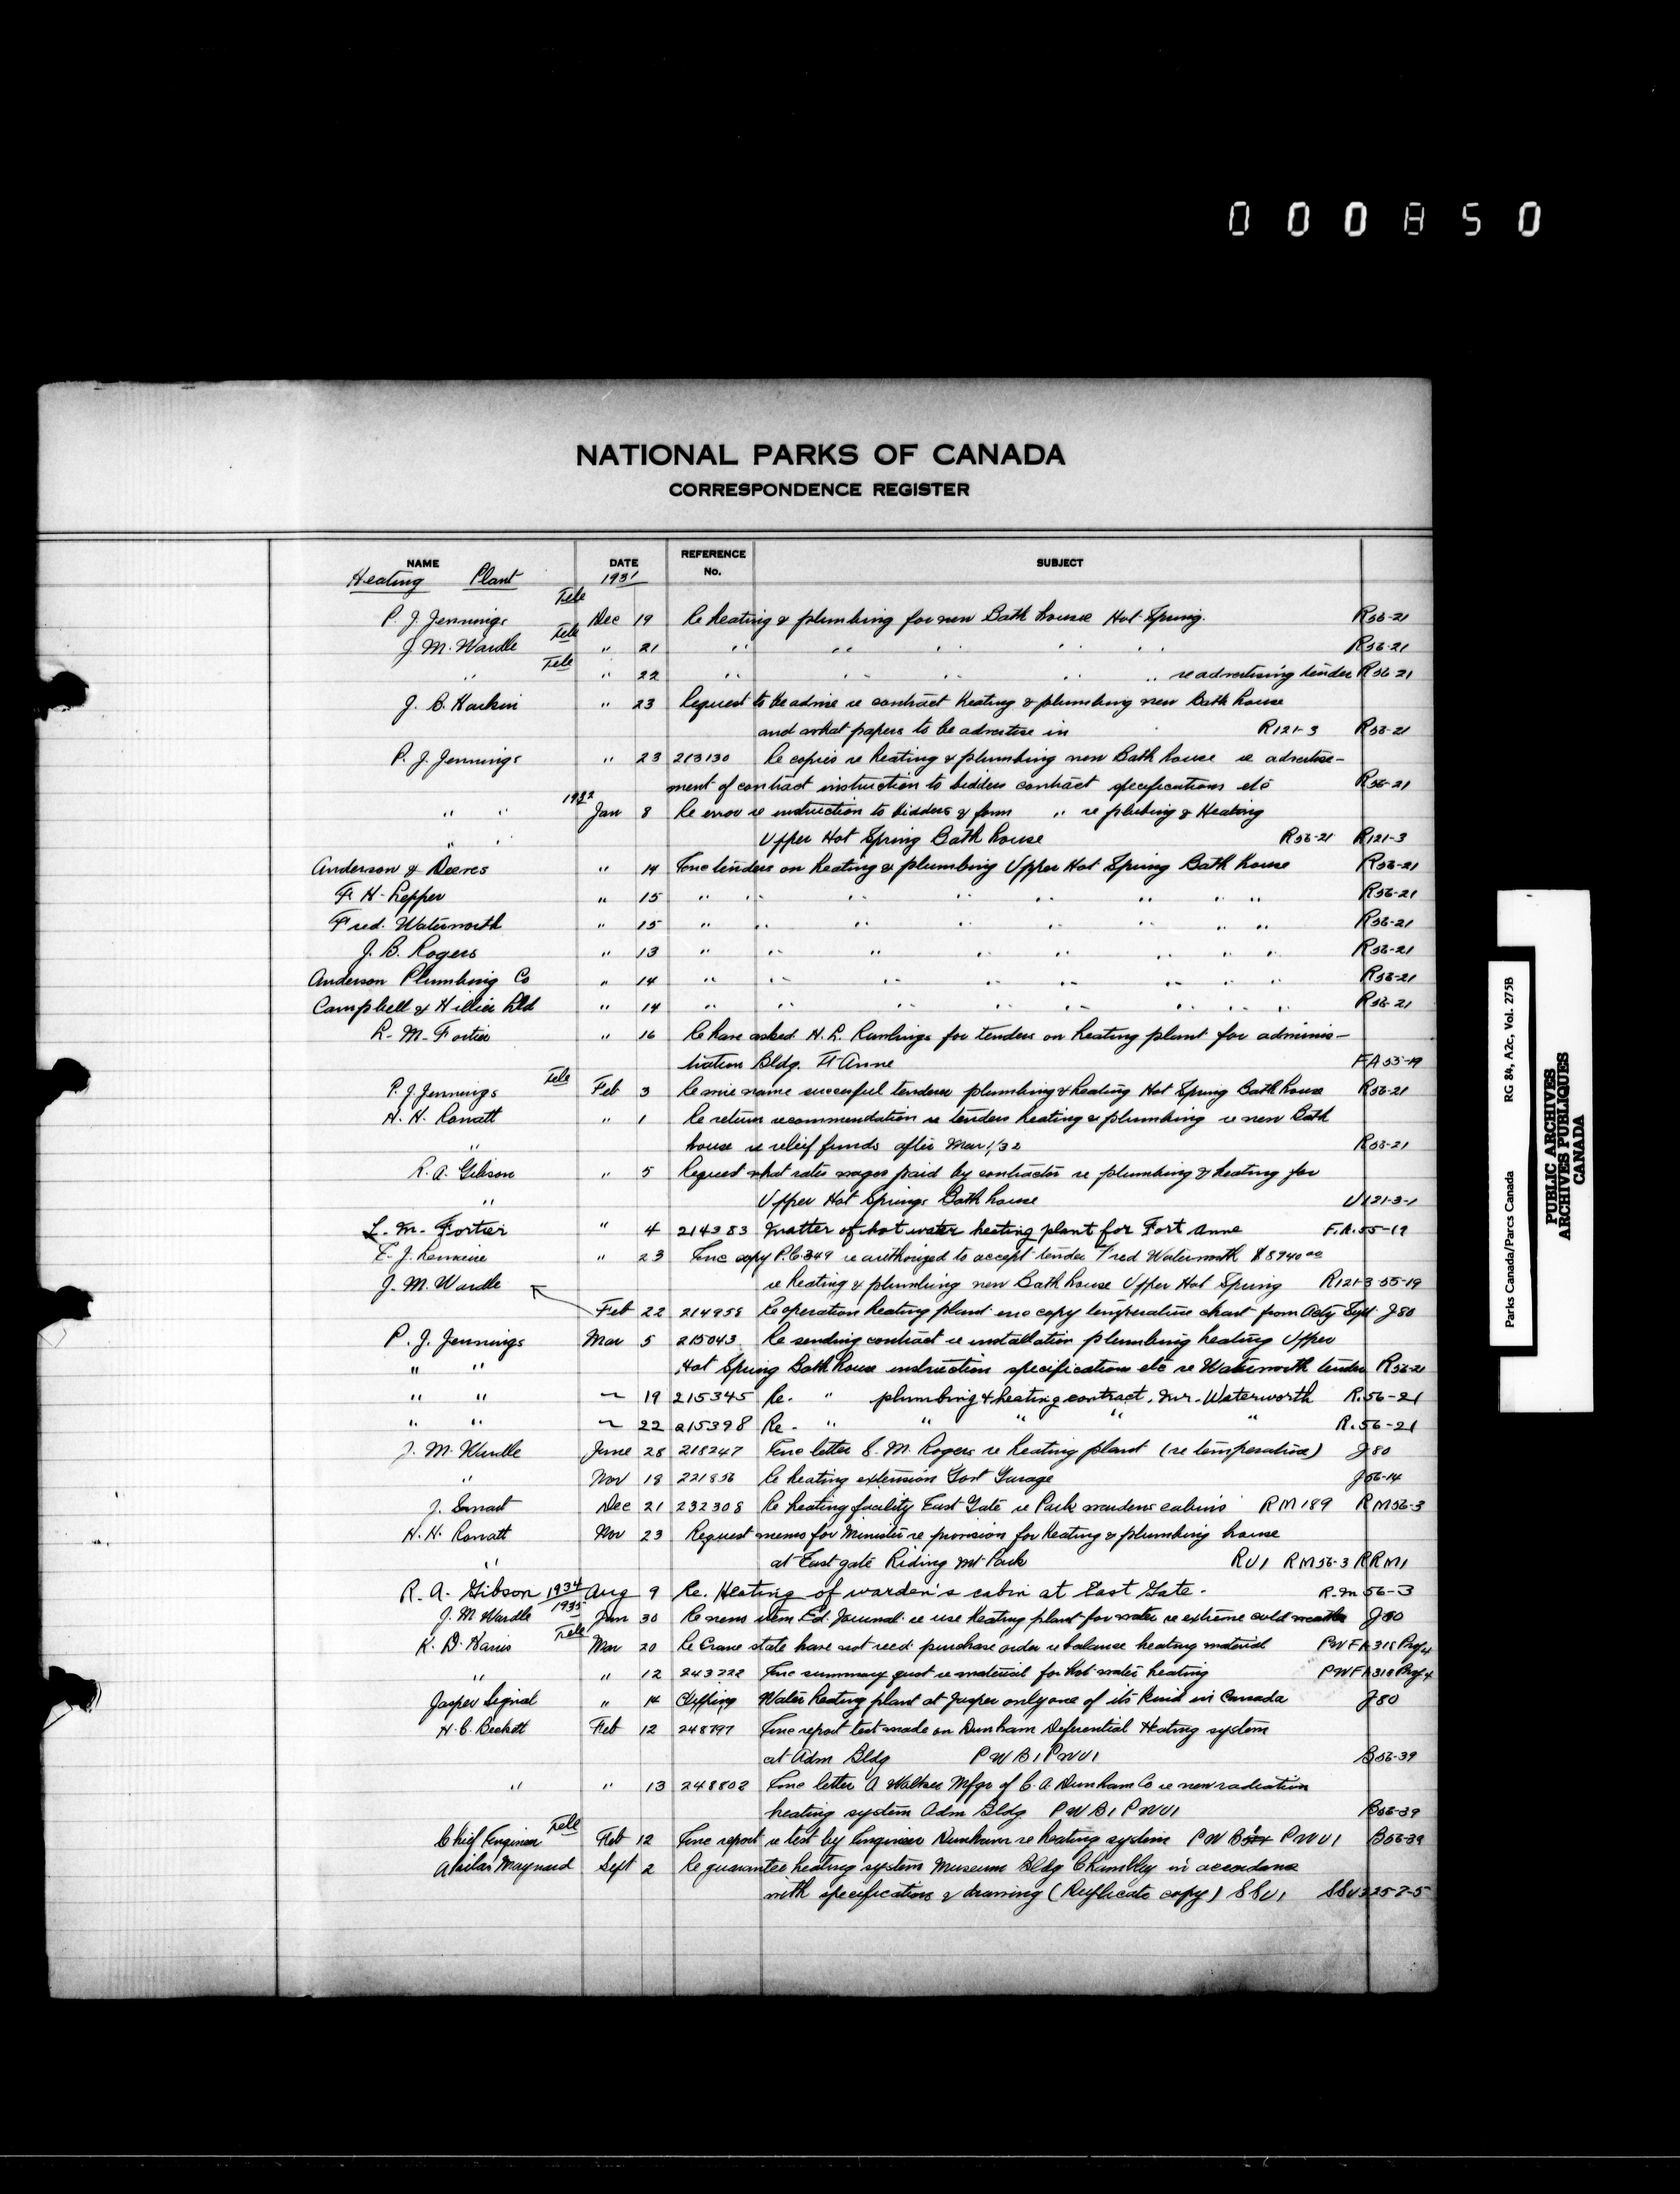 000850
NATIONAL PARKS OF CANADA
CORRESPONDENCE REGISTER
NAME DATE REFERENCE No. SUBJECT
Heating Plant 1931
P. J. Jennings Tele Dec 19 Re heating & plumbing for new Bath house Hot Spring. R56-21
J. M. Wardle Tele " 21 " " " " " R56-21
" Tele " 22 " " " " " re advertising tender R56-21
J. B. Harkin " 23 Request to be advise re contract heating & plumbing new Bath house
and what papers to be advertise in R121-3 R56-21
P. J. Jennings " 23 213130 Re copies re heating & plumbing new Bath house re advertise-
ment of contract instruction to bidders contract specifications etc R56-21
" " 1932 Jan 8 Re error re instruction to bidders & form " re plubing & Heating
" " Upper Hot Spring Bath house R56-21 R121-3
Anderson & Deeves " 14 Enc tenders on heating & plumbing Upper Hot Spring Bath house R56-21
F. H. Lepper " 15 " " " " " " " " R56-21
Fred. Waterworth " 15 " " " " " " " " R56-21
J. B. Rogers " 13 " " " " " " " R56-21
Anderson Plumbing Co " 14 " " " " " " " " R56-21
Campbell & Hillier Ltd " 14 " " " " " " " " " R56-21
L. M. Fortier " 16 Re have asked H. L. Rawlings for tenders on heating plant for adminis-
tration Bldg. Ft Anne FA55-19
P. J. Jennings Tele Feb 3 Re wire name successful tenderer plumbing & heating Hot Spring Bath house R56-21
H. H. Rowatt " 1 Re return recommendation re tenders heating & plumbing re new Bath
" house re releif funds after Mar 1/32 R56-21
R. A. Gibson " 5 Request what rates wages paid by contractor re plumbing & heating for
" Upper Hot Springs Bath house U121-3-1
L. M. Fortier " 4 214383 Matter of hot water heating plant for Fort Anne F.A.55-19
" 23 Enc copy P.C.349 re authorized to accept tender Fred Waterworth $8940.00
J. M. Wardle re heating & plumbing new Bath house Upper Hot Spring R121-3 55-19
Feb 22 214958 Re operation heating plant enc copy temperature chart from Actg Supt J80
P. J. Jennings Mar 5 215043 Re sending contract re installation plumbing heating Upper
" " Hot Spring Bath house instruction specifications etc re Waterworth tender R56-21
" " " 19 215345 Re. " plumbing & heating contract, Mr. Waterworth R.56-21
" " " 22 215398 Re. " " " " " R.56-21
J. M. Wardle June 28 218247 Enc letter S. M. Rogers re heating plant (re temperature) J80
" Nov 18 221856 Re heating extension Govt Garage J56-14
J. Smart Dec 21 232308 Re heating facility East Gate re Park wardens cabins RM189 RM56-3
H. H. Rowatt Nov 23 Request memo for Minister re provision for heating & plumbing house
" at East gate Riding Mt Park RU1 RM56-3 RRM1
R. A. Gibson 1934 Aug 9 Re. Heating of warden's cabin at East Gate. R.M 56-3
J. M Wardle 1935 Jan 30 Re news item Ed. Journal re use heating plant for water re extreme cold weather J80
K. D. Harris Tele Mar 20 Re Crane state have not recd purchase order re balance heating material PWFA318 Proj 4
" " 12 243222 Enc summary quot re material for hot water heating PWFA318 Proj 4
Jasper Signal " 14 Clipping Water heating plant at Jasper only one of its kind in Canada J80
H. C. Beckett Feb 12 248797 Enc report test made on Dunham Deferential Heating system
at Adm Bldg PWB1 PWU1 B56-39
" " 13 248802 Enc letter A Walker Mfgr of C. A Dunham Co re new radiation
heating system Adm Bldg PWB1 PWU1 B56-39
Chief Engineer Tele Feb 12 Enc report re test by Engineer Dunham re heating system PWB1 PWU1 B56-39
Maynard Sept 2 Re guarantee heating system Museum Bldg Chambly in accordance
with specifications & drawing (Duplicate copy) SSU1 SSU325-7-5
Parks Canada/Parcs Canada RG 84, A2c, Vol. 275B
PUBLIC ARCHIVES
ARCHIVES PUBLIQUES
CANADA